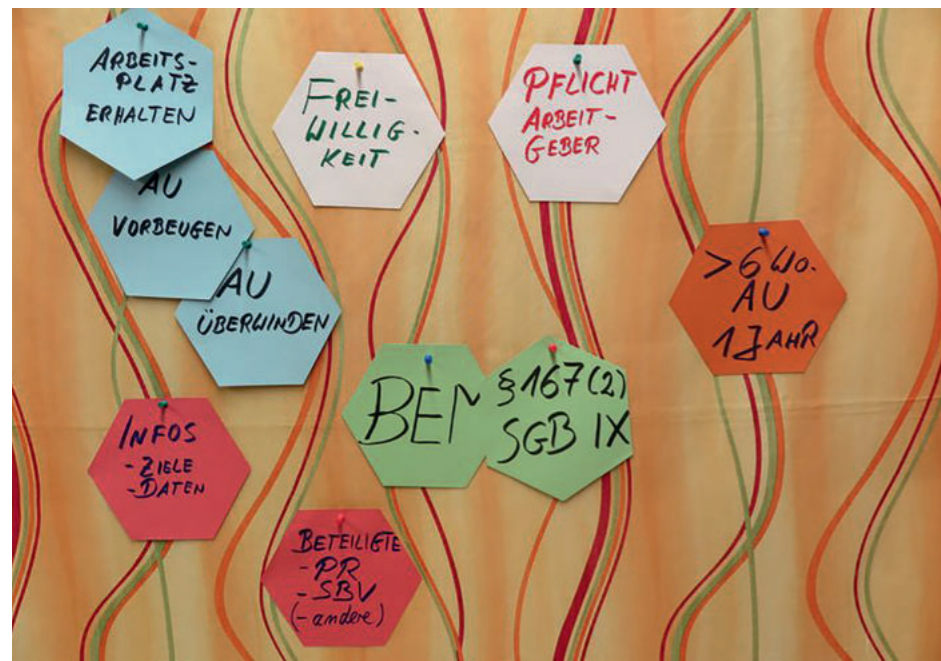 ARBEITS-
PLATZ
ERHALTEN
AU
VORBEUGEN
AU
ÜBERWINDEN
FREI-
WILLIG-
KEIT
PFLICHT
ARBEIT-
GEBER
>6 WO.
AU
1 JAHR
BEM
§167(2)
SGB IX
INFOS
- ZIELE
- DATEN
BETEILIGTE
- PR
- SBV
(- andere)